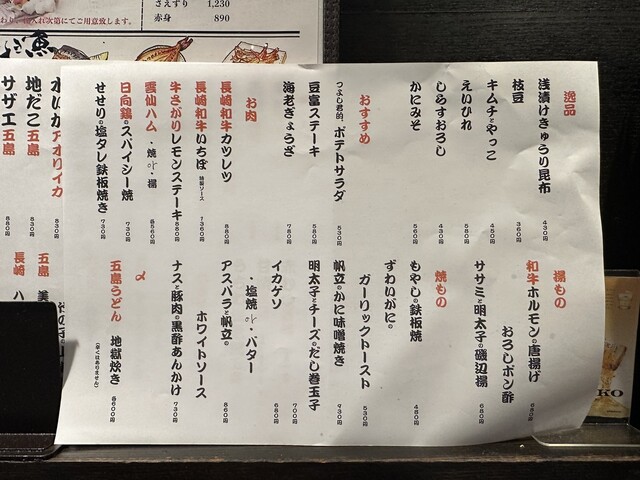 逸品
浅漬けきゅうり昆布 430円
枝豆 360円
キムチとやっこ 480円
えいひれ 580円
しらすおろし 430円
かにみそ 560円
おすすめ
つよし君的 ポテトサラダ 530円
豆富ステーキ 580円
海老ぎょうざ 780円
お肉
長崎和牛カツレツ 880円
長崎和牛いちぼ 特製ソース 1360円
牛さがりレモンステーキ 880円
雲仙ハム ・焼 or ・揚 各560円
日向鶏のスパイシー焼 730円
せせりの塩タレ鉄板焼き 730円
揚もの
和牛ホルモンの唐揚げ
おろしポン酢 680円
ササミと明太子の磯辺揚 680円
焼もの
もやしの鉄板焼 480円
ずわいがにの
ガーリックトースト 530円
帆立のかに味噌焼き 930円
明太子とチーズのだし巻玉子 700円
イカゲソ
・塩焼 or ・バター 680円
アスパラと帆立の
ホワイトソース 860円
ナスと豚肉の黒酢あんかけ 730円
〆
五島うどん 地獄炊き 各600円
(辛くはありません)
さえずり 1,230
赤身 890
入れ次第にてご用意致します。
魚
水いかアオリイカ 830円
地だこ五島 830円
サザエ五島 680円
五島 美
長崎 ハ
KO